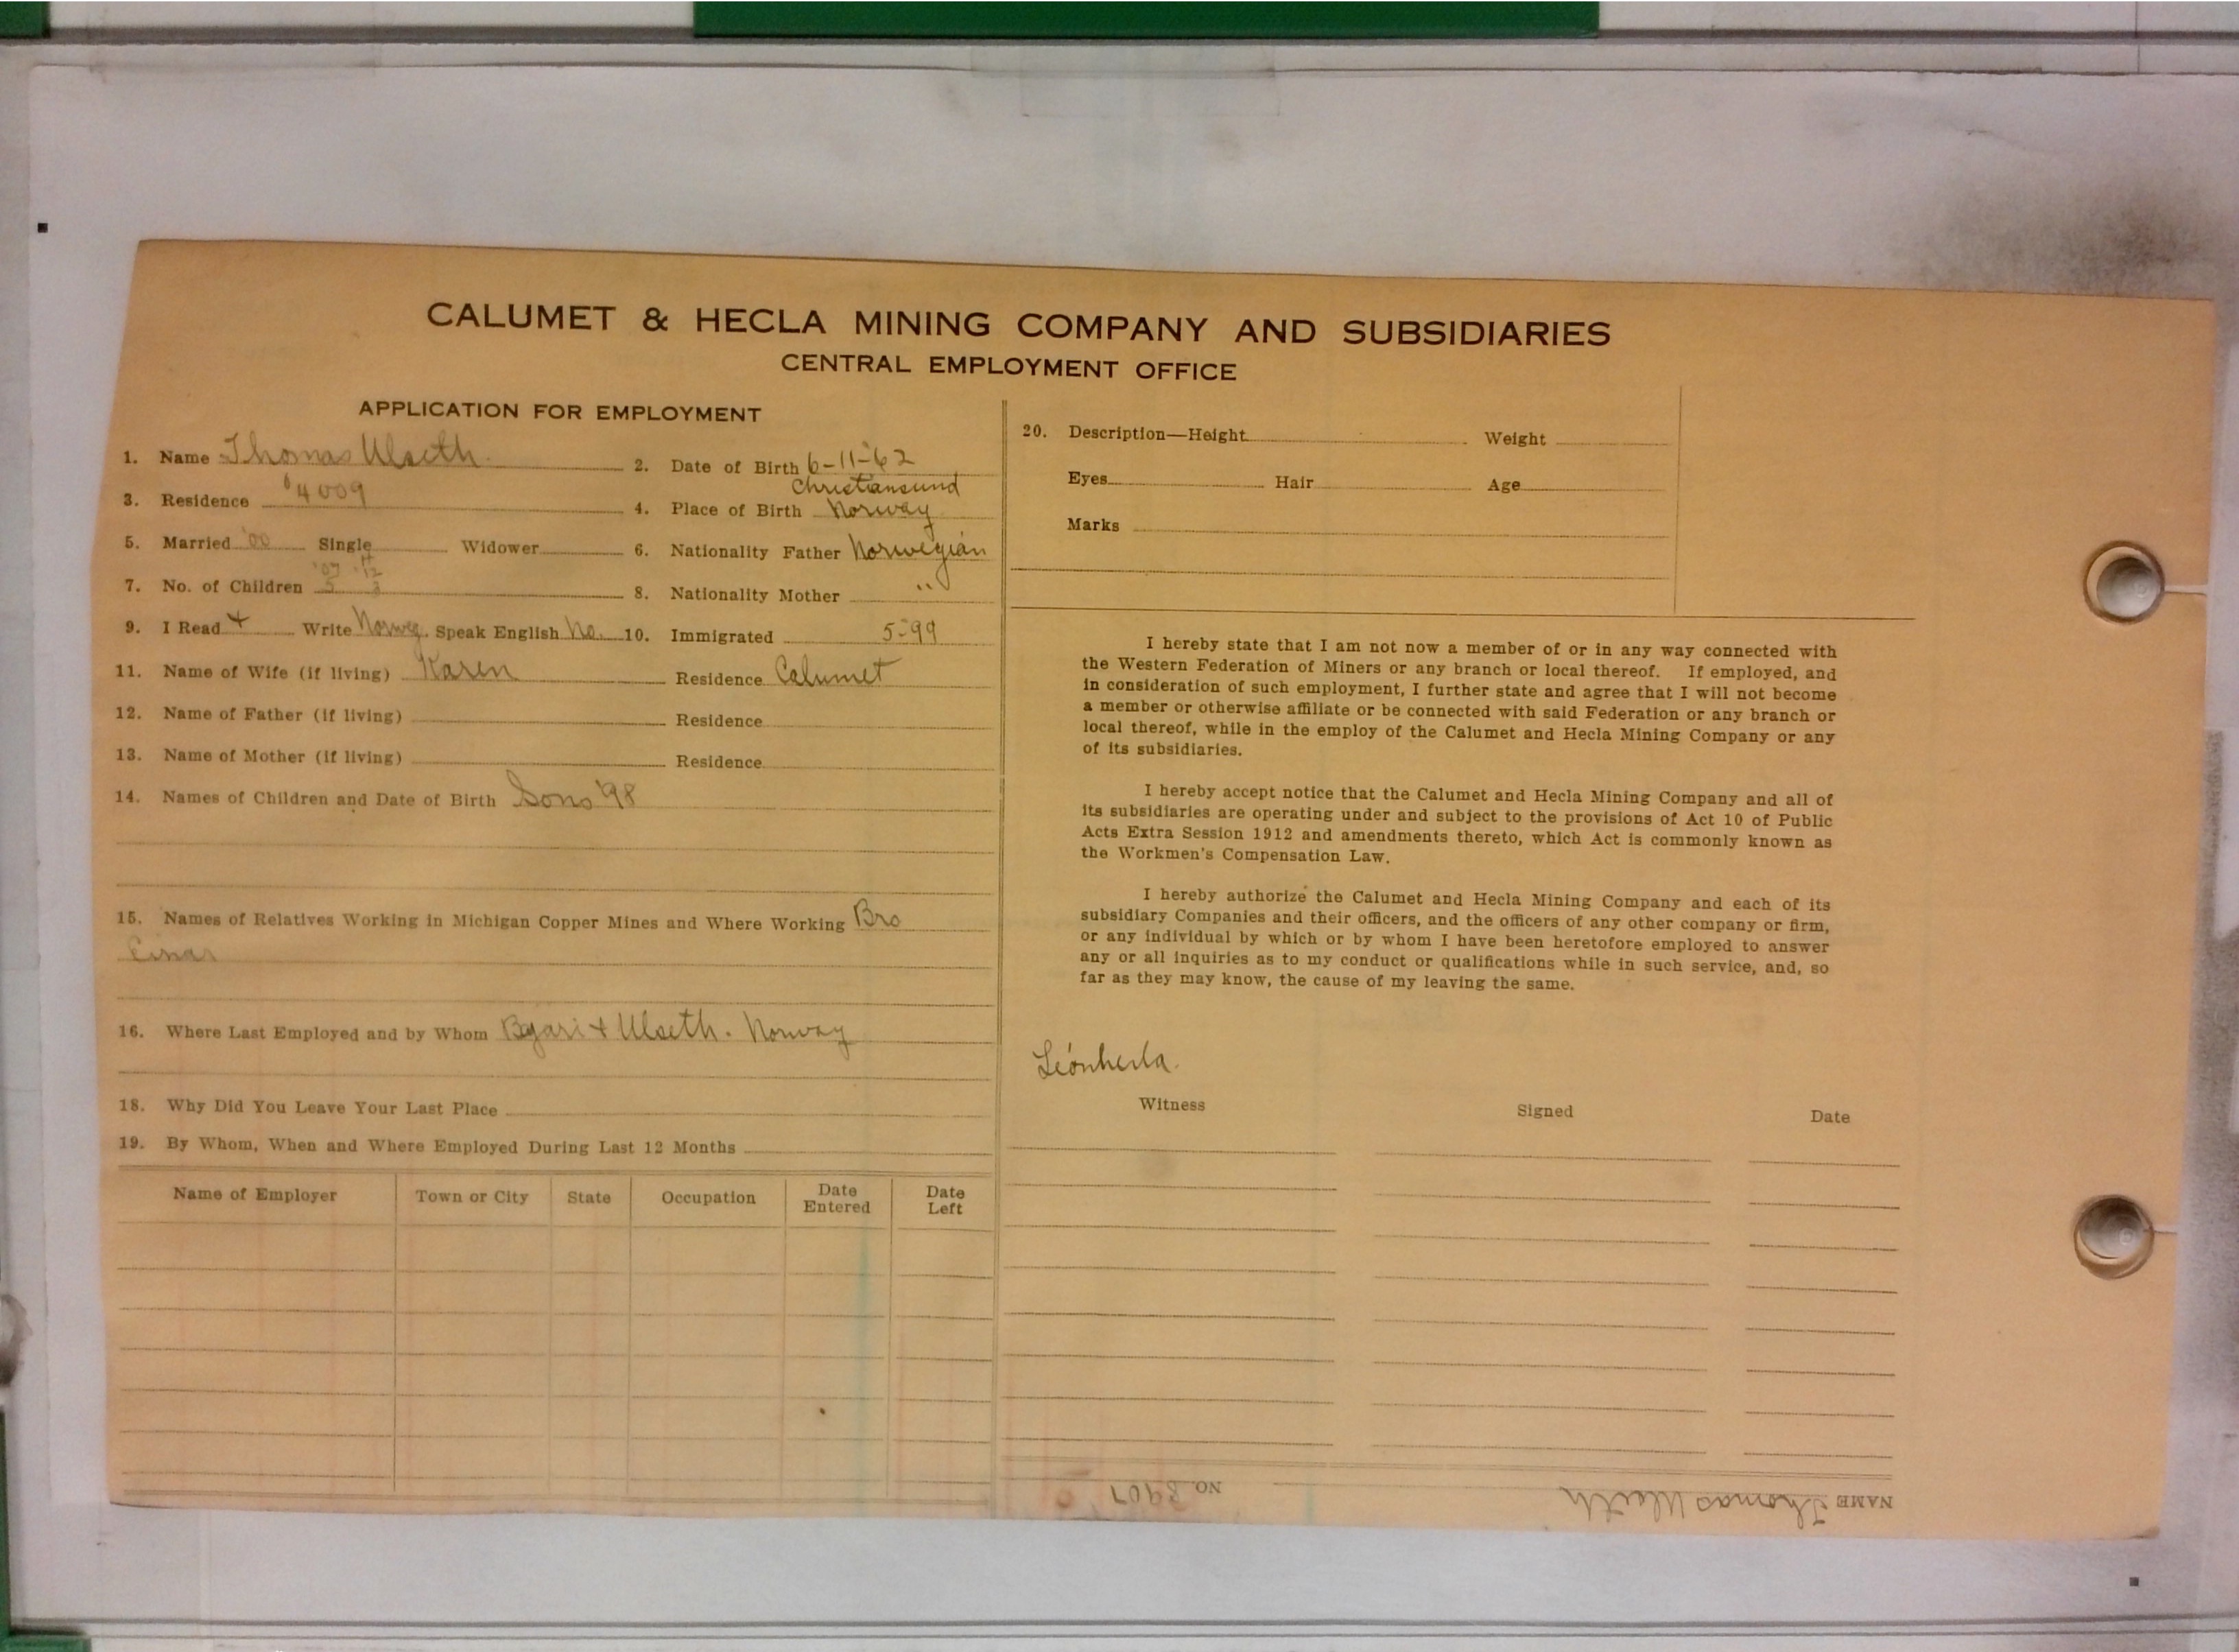 CALUMET & HECLA MINING COMPANY AND SUBSIDIARIES
CENTRAL EMPLOYMENT OFFICE
APPLICATION FOR EMPLOYMENT
1. Name Thomas Ulseth 2. Date of Birth 6-11-'62
Christiansund
3. Residence 4009 4. Place of Birth Norway
5. Married '00 Single Widower 6. Nationality Father Norwegian
7. No. of Children 8. Nationality Mother "
9. I Read + Write Norweg. Speak English No. 10. Immigrated 5-99
11. Name of Wife (if living) Karen Residence Calumet
12. Name of Father (if living) Residence
13. Name of Mother (if living) Residence
14. Names of Children and Date of Birth Sons '98
15. Names of Relatives Working in Michigan Copper Mines and Where Working Bro
Einar
16. Where Last Employed and by Whom + Ulseth. Norway
18. Why Did You Leave Your Last Place
19. By Whom, When and Where Employed During Last 12 Months
Name of Employer Town or City State Occupation Date Entered Date Left
20. Description—Height Weight
Eyes Hair Age
Marks
I hereby state that I am not now a member of or in any way connected with
the Western Federation of Miners or any branch or local thereof. If employed, and
in consideration of such employment, I further state and agree that I will not become
a member or otherwise affiliate or be connected with said Federation or any branch or
local thereof, while in the employ of the Calumet and Hecla Mining Company or any
of its subsidiaries.
I hereby accept notice that the Calumet and Hecla Mining Company and all of
its subsidiaries are operating under and subject to the provisions of Act 10 of Public
Acts Extra Session 1912 and amendments thereto, which Act is commonly known as
the Workmen's Compensation Law.
I hereby authorize the Calumet and Hecla Mining Company and each of its
subsidiary Companies and their officers, and the officers of any other company or firm,
or any individual by which or by whom I have been heretofore employed to answer
any or all inquiries as to my conduct or qualifications while in such service, and, so
far as they may know, the cause of my leaving the same.
Witness Signed Date
NAME Thomas Ulseth NO. 8907